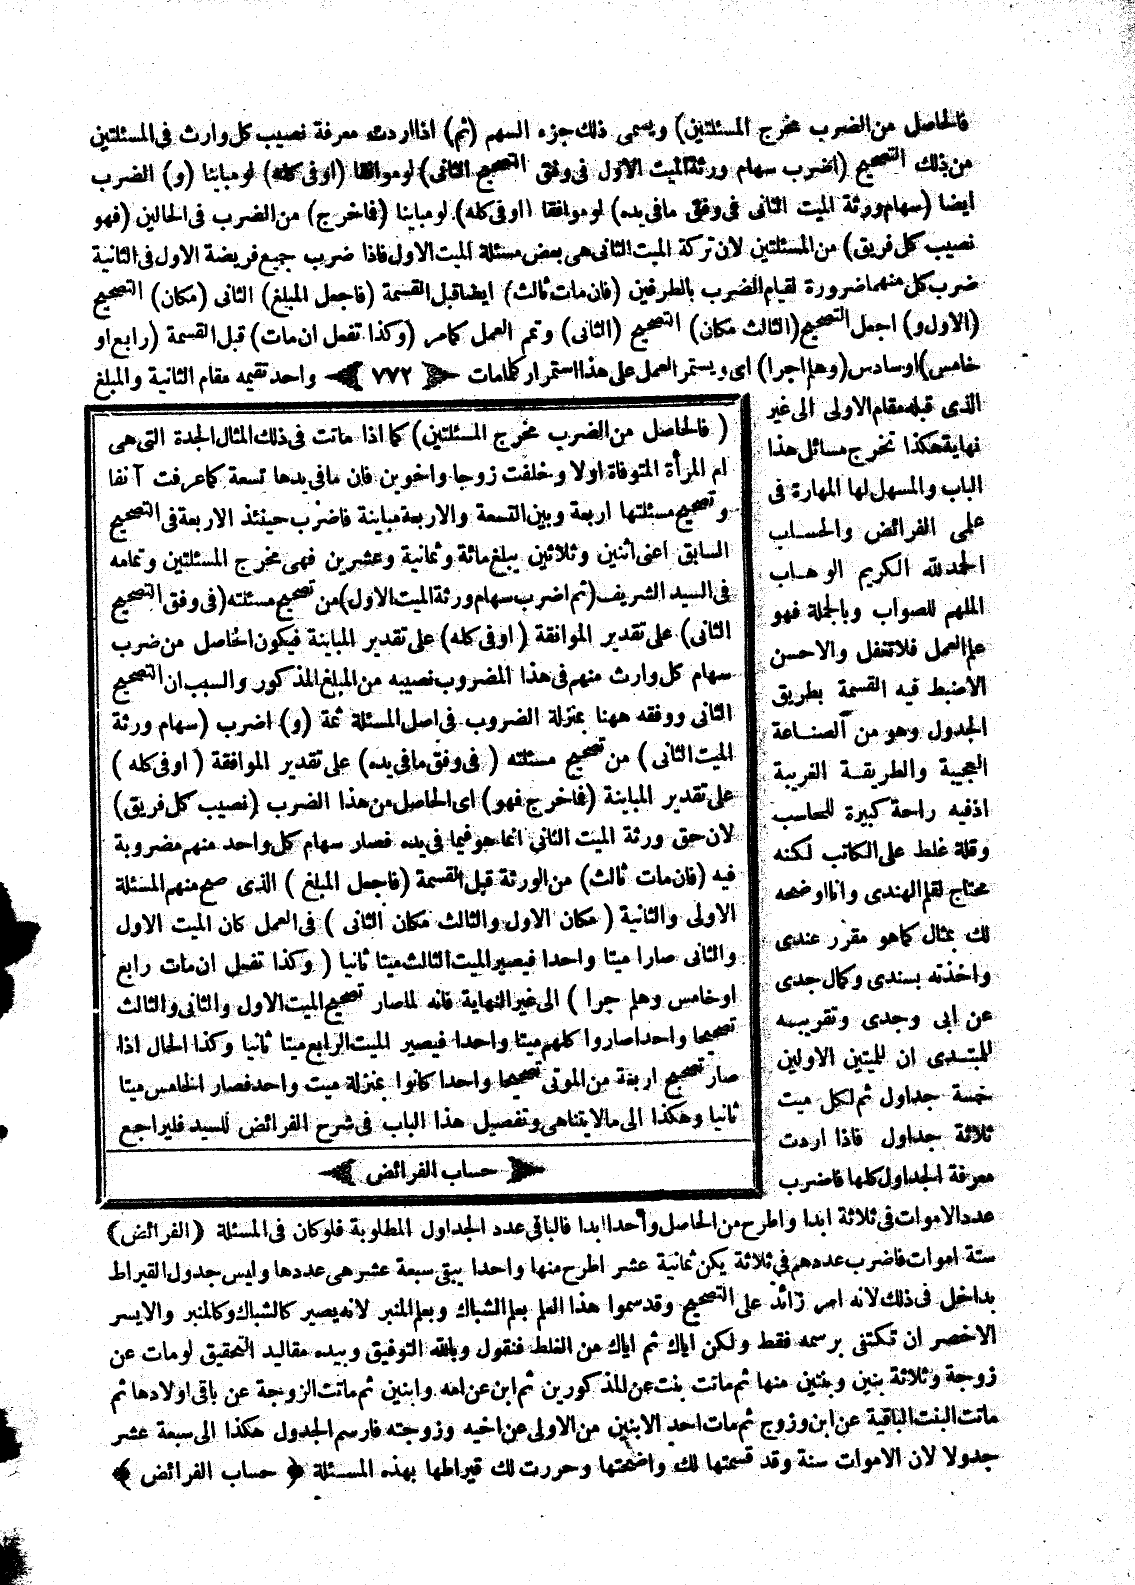 فالحاصل من الضرب مخرج المسئلتين) ويسمى ذلك جزء السهم (ثم) اذا اردت معرفة نصيب كل وارث فى المسئلتين
من ذلك التصحيح (اضرب سهام ورثة الميت الاول فى وفق التصحيح الثانى) لو موافقا (او فى كله) لو مباينا (و) الضرب
ايضا (سهام ورثة الميت الثانى فى وفق ما فى يده) لو موافقا (او فى كله) لو مباينا (فما خرج) من الضرب فى الحالين (فهو
نصيب كل فريق) من المسئلتين لان تركة الميت الثانى هى بعض مسئلة الميت الاول فاذا ضرب جميع فريضة الاول فى الثانية
ضرب كل منهما ضرورة لقيام الضرب بالطرفين (فان مات ثالث) ايضا قبل القسمة (فاجعل المبلغ) الثانى (مكان) التصحيح
(الاول و) اجعل التصحيح (الثالث مكان) التصحيح (الثانى) وتمم العمل كما مر (وكذا تفعل ان مات) قبل القسمة (رابع او
خامس) او سادس (وهلم جرا) اى ويستمر العمل على هذا استمرار كلما مات ﴿٧٧٢﴾ واحد تقيمه مقام الثانية والمبلغ
الذى قبله مقام الاولى الى غير
نهاية هكذا تخرج مسائل هذا
الباب والمسهل لها المهارة فى
علمى الفرائض والحساب
الحمدلله الكريم الوهاب
الملهم للصواب وبالجملة فهو
علم العمل فلا تغفل والاحسن
الاضبط فيه القسمة بطريق
الجدول وهو من الصناعة
العجيبة والطريقة الغريبة
اذ فيه راحة كبيرة للحاسب
وقلة غلط على الكاتب لكنه
محتاج لقلم الهندى وانا اوضحه
لك بمثال كما هو مقرر عندى
واخذته بسندى وكمال جدى
عن ابى وجدى وتقريبه
للمبتدى ان للميتين الاولين
خمسة جداول ثم لكل ميت
ثلاثة جداول فاذا اردت
معرفة الجداول كلها فاضرب
( فالحاصل من الضرب مخرج المسئلتين) كما اذا ماتت فى ذلك المثال الجدة التى هى
ام المرأة المتوفاة اولا وخلفت زوجا واخوين فان ما فى يدها تسعة كما عرفت آنفا
وتصحيح مسئلتها اربعة وبين التسعة والاربعة مباينة فاضرب حينئذ الاربعة فى التصحيح
السابق اعنى اثنين وثلاثين يبلغ مائة وثمانية وعشرين فهى مخرج المسئلتين وتمامه
فى السيد الشريف (ثم اضرب سهام ورثة الميت الاول) من تصحيح مسئلته (فى وفق التصحيح
الثانى) على تقدير الموافقة (او فى كله) على تقدير المباينة فيكون الحاصل من ضرب
سهام كل وارث منهم فى هذا المضروب نصيبه من المبلغ المذكور والسبب ان التصحيح
الثانى ووفقه ههنا بمنزلة الضروب فى اصل المسئلة ثمة (و) اضرب (سهام ورثة
الميت الثانى) من تصحيح مسئلته ( فى وفق ما فى يده) على تقدير الموافقة ( او فى كله )
على تقدير المباينة (فما خرج فهو) اى الحاصل من هذا الضرب (نصيب كل فريق)
لان حق ورثة الميت الثانى انما هو فيما فى يده فصار سهام كل واحد منهم مضروبة
فيه (فان مات ثالث) من الورثة قبل القسمة (فاجعل المبلغ ) الذى صح منهم المسئلة
الاولى والثانية ( مكان الاول والثالث مكان الثانى ) فى العمل كان الميت الاول
والثانى صارا ميتا واحدا فيصير الميت الثالث ميتا ثانيا ( وكذا تفعل ان مات رابع
او خامس وهلم جرا ) الى غير النهاية فانه لما صار تصحيح الميت الاول والثانى والثالث
تصحيحا واحدا صاروا كلهم ميتا واحدا فيصير الميت الرابع ميتا ثانيا وكذا الحال اذا
صار تصحيح اربعة من الموتى تصحيحا واحدا كانوا بمنزلة ميت واحد فصار الخامس ميتا
ثانيا وهكذا الى ما لا يتناهى وتفصيل هذا الباب فى شرح الفرائض للسيد فليراجع
﴿ حساب الفرائض ﴾
عدد الاموات فى ثلاثة ابدا واطرح من الحاصل واحدا ابدا فالباقى عدد الجداول المطلوبة فلو كان فى المسئلة (الفرائض)
ستة اموات فاضرب عددهم فى ثلاثة يكن ثمانية عشر اطرح منها واحدا يبقى سبعة عشر هى عددها وليس جدول القيراط
بداخل فى ذلك لانه امر زائد على التصحيح وقد سموا هذا العلم بعلم الشباك وبعلم المنبر لانه يصير كالشباك وكالمنبر والايسر
الاخصر ان تكتفى برسمه فقط ولكن اياك ثم اياك من الغلط فنقول وبالله التوفيق وبيده مقاليد التحقيق لو مات عن
زوجة وثلاثة بنين وبنتين منها ثم ماتت بنت عن المذكورين ثم ابن عن امه وابنين ثم ماتت الزوجة عن باقى اولادها ثم
ماتت البنت الباقية عن ابن وزوج ثم مات احد الابنين من الاولى عن اخيه وزوجته فارسم الجدول هكذا الى سبعة عشر
جدولا لان الاموات ستة وقد قسمتها لك واضحتها وحررت لك قيراطها بهذه المسئلة ﴿ حساب الفرائض ﴾